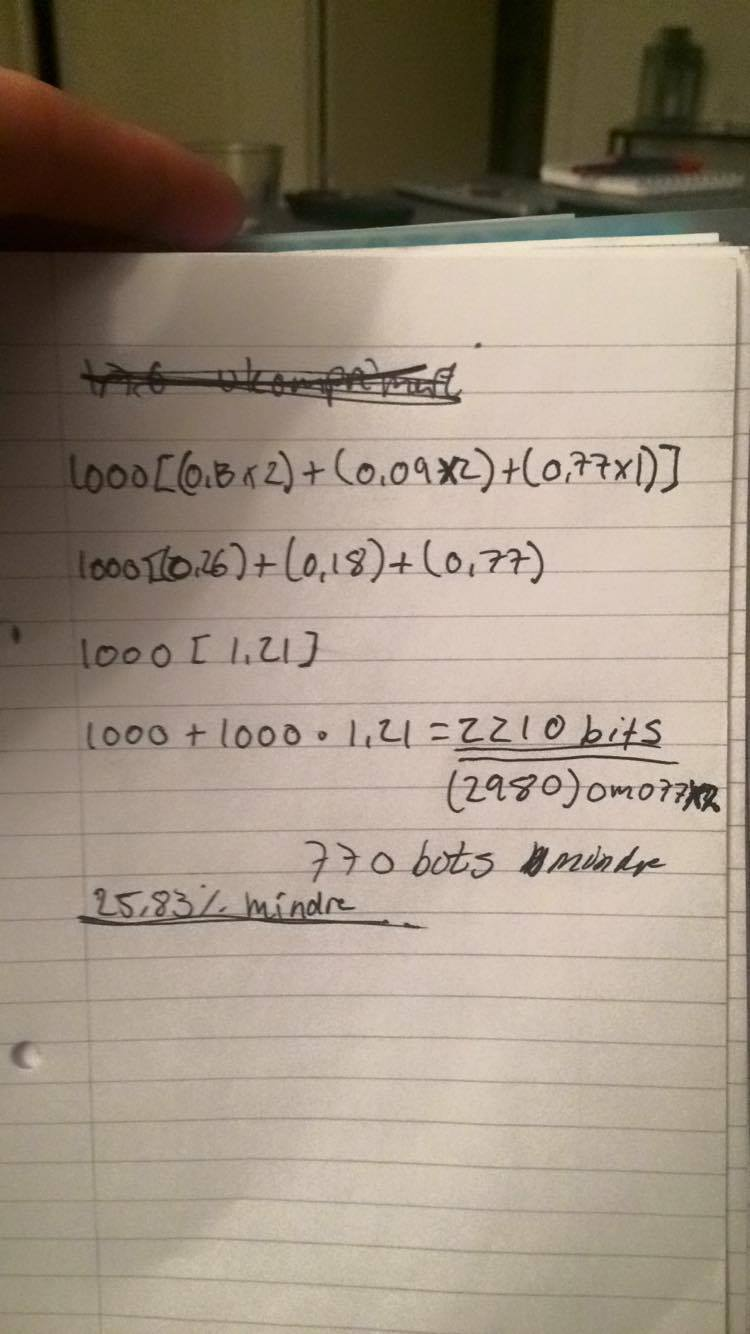 1000[(0,13 x 2) + (0,09 x 2) + (0,77 x 1)]
1000[(0,26) + (0,18) + (0,77)
1000 [ 1,21 ]
1000 + 1000 · 1,21 = 2210 bits
(2980) om 0 77 x 2
770 bots mindre
25,83% mindre